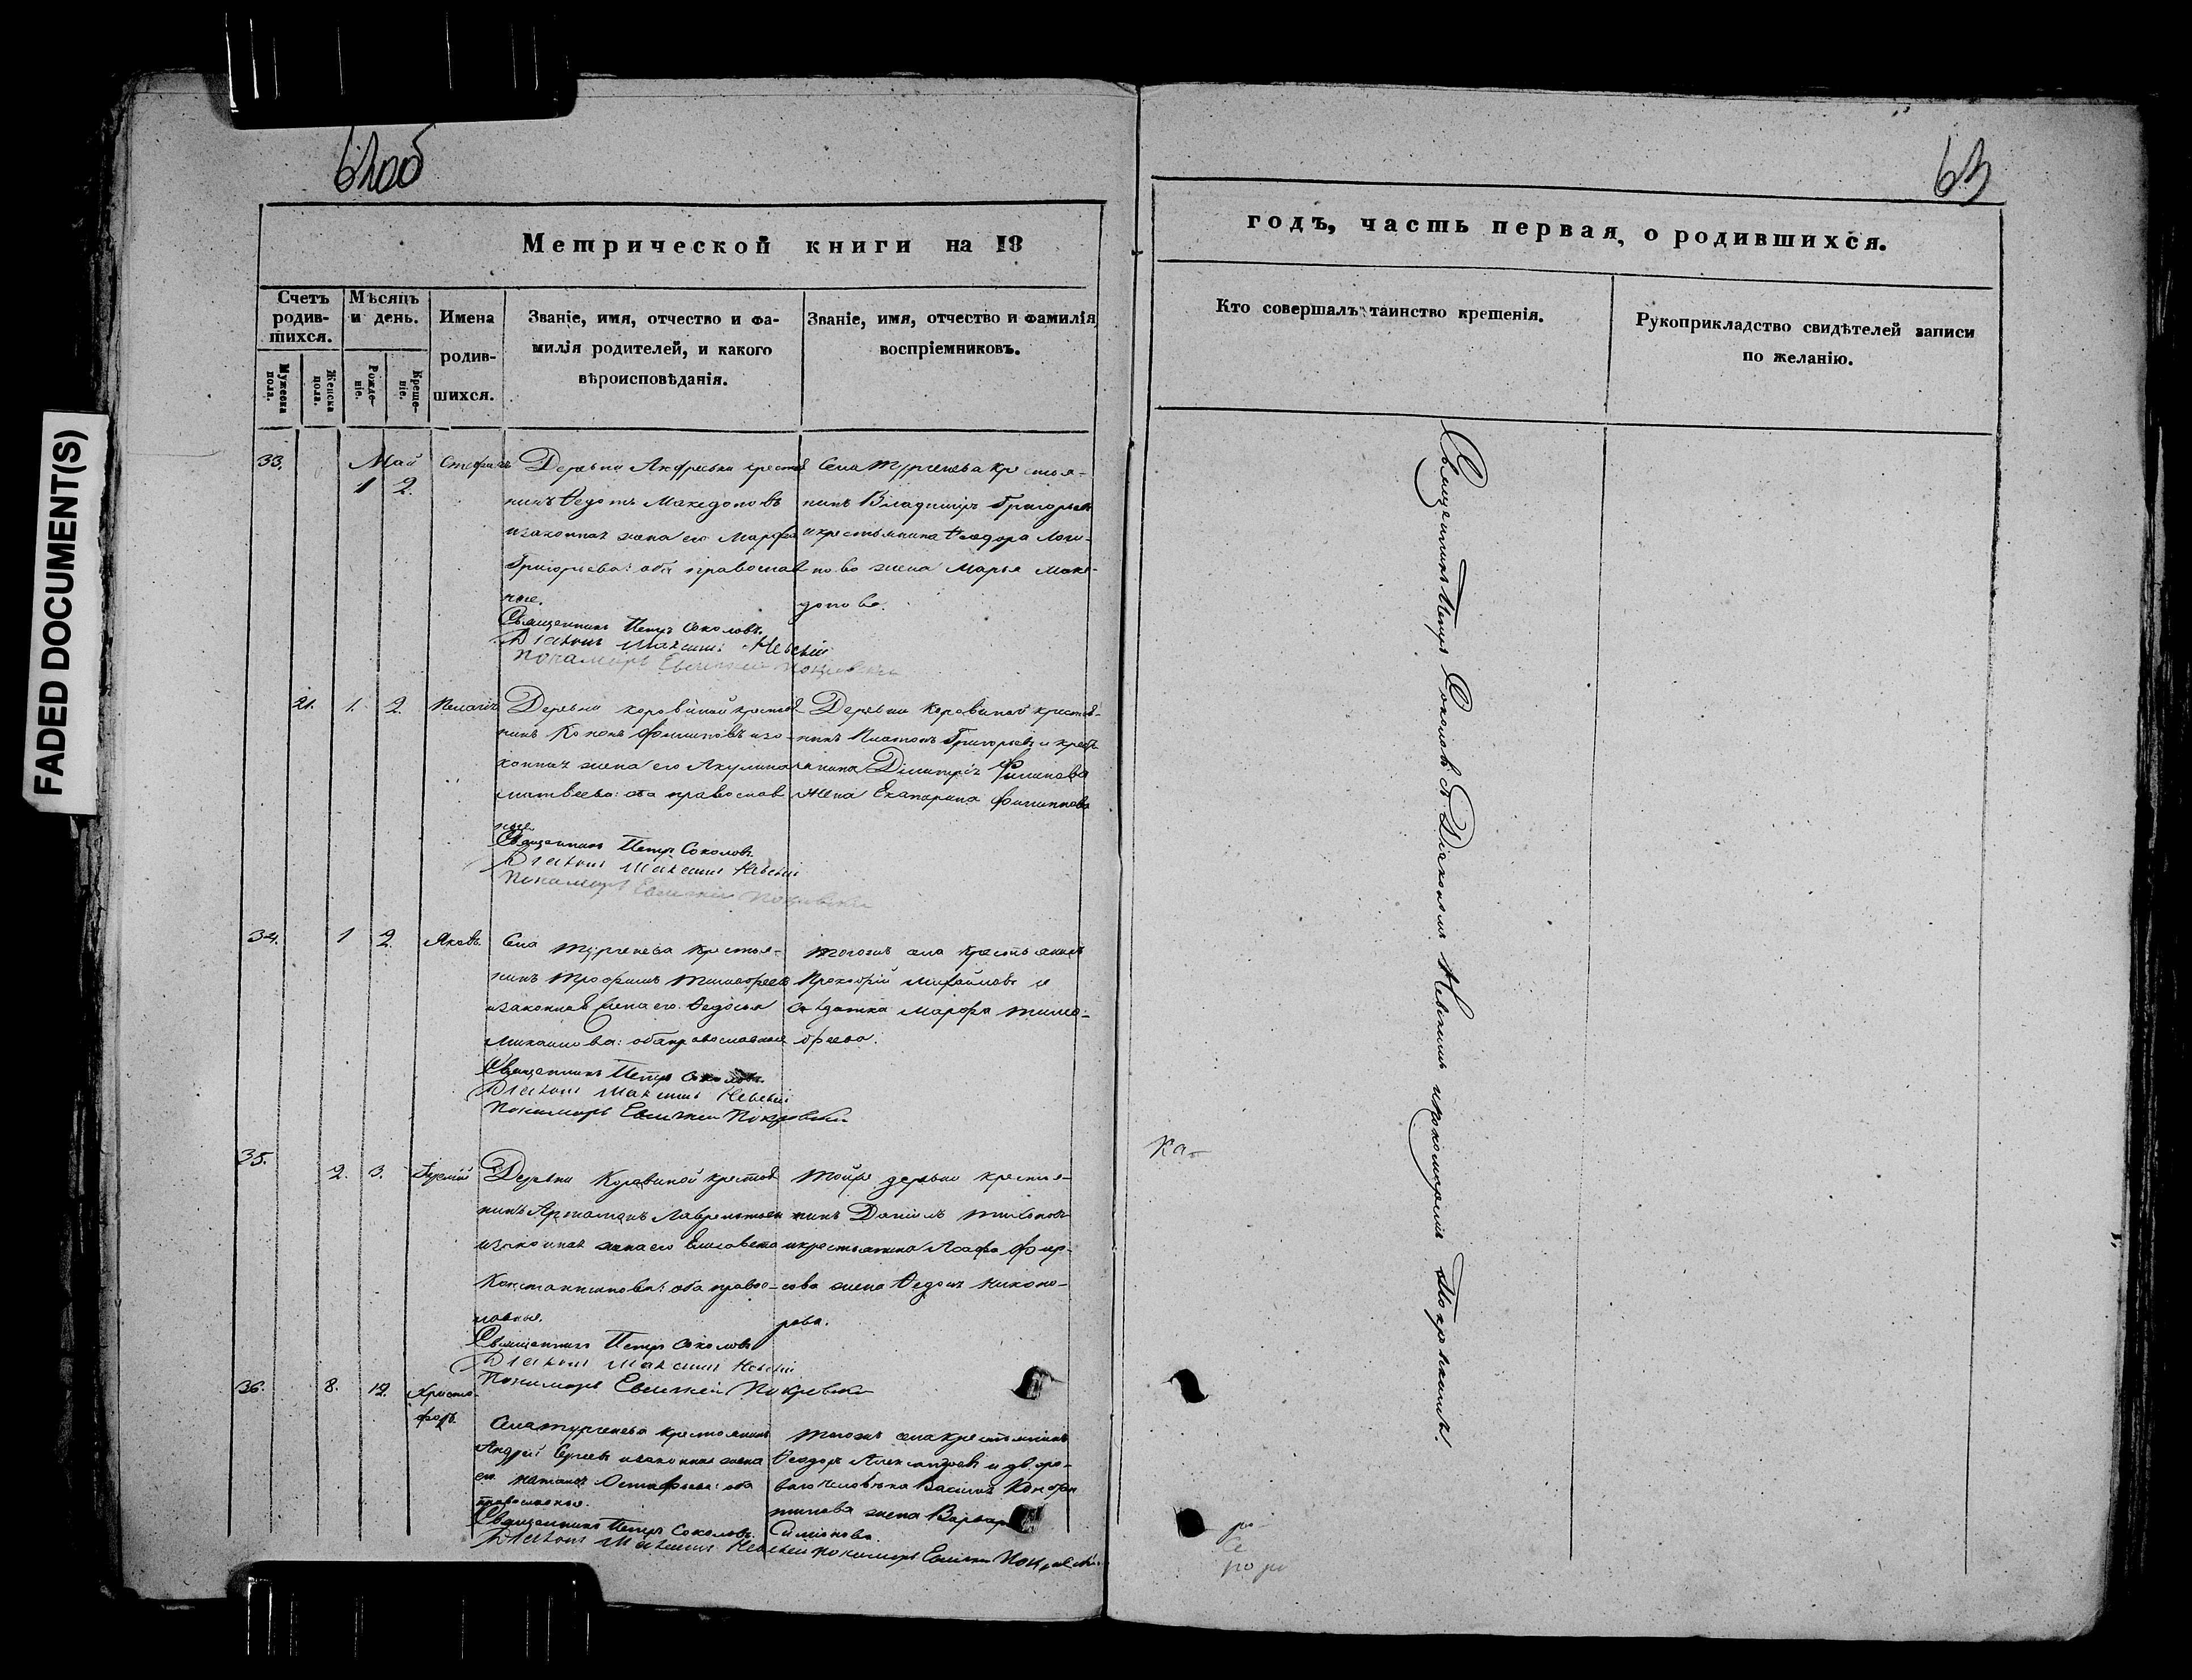 FADED DOCUMENT(S)
62об
63
Метрической книги на 18
годъ, часть первая, о родившихся.
Счетъ родив-
шихся.
Мужеска пола.
Женска пола.
Мѣсяцъ
и день.
Рожде-
ніе.
Креще-
ніе.
Имена
родив-
шихся.
Званіе, имя, отчество и фа-
милія родителей, и какого
вѣроисповѣданія.
Званіе, имя, отчество и фамилія
воспріемниковъ.
Кто совершалъ таинство крещенія.
Рукоприкладство свидѣтелей записи
по желанію.
33.
Май
1 2.
Стефанъ
Деревни крестья
нинъ Ѳедотъ Македоновъ
изаконная жена его Марфа
Григорьева: оба православ
ные.
Священникъ Петръ Соколовъ.
Діаконъ Максимъ Невскій
Пономарь Евгеній Покровскій
Села Тургенева крестья-
нинъ Владимиръ Григорьевъ
икрестьянина Ѳеодора Логи-
нова жена Марья Маке-
донова.
21. 1. 2.
Пелагія
Деревни Коровиной крестья
нинъ Кононъ Филиповъ иза-
конная жена его Акулина
Матвеева: оба православ
ные
Священникъ Петръ Соколовъ.
Діаконъ Максимъ Невскій
Пономарь Евгеній Покровскій
Деревни Коровиной крестья-
нинъ Платонъ Григорьевъ и кресть
янина Димитрія Филипова
жена Екатерина Филиппова
34. 1 2.
Яковъ.
Села Тургенева крестья-
нинъ Трофимъ Тимофеевъ
изаконная жена его Ѳедосья
Михаилова: оба православные
Священникъ Петръ Соколовъ.
Діаконъ Максимъ Невскій
Пономарь Евгеній Покровскій
Тогожъ села крестьянинъ
Прокофій Михайловъ и
солдатка Марфа Тимо-
феева.
35. 2. 3.
Деревни Коровиной крестья
нинъ Артамонъ Лаврентьевъ
изаконная жена его Елисавета
Константинова: оба право-
славные.
Священникъ Петръ Соколовъ
Діаконъ Максимъ Невскій
Пономарь Евгеній Покровскій
Тойже деревни крестья-
нинъ Даніилъ
икрестьянина Фир-
сова жена Никоно-
рова.
36. 8. 12.
Христо-
форъ.
Села Тургенева крестьянинъ
Андрей Сергеевъ изаконная жена
его Наталья Остафьева: оба
православные.
Священникъ Петръ Соколовъ.
Діаконъ Максимъ Невскій пономарь Евгеній Покровскій
Тогожъ села крестьянинъ
Ѳеодоръ Александровъ и дворо-
ваго человѣка Василья
жена Варвара
Симонова
Священникъ Петръ Соколовъ съ Діакономъ Невскимъ ипономаремъ Покровскимъ.
Ка